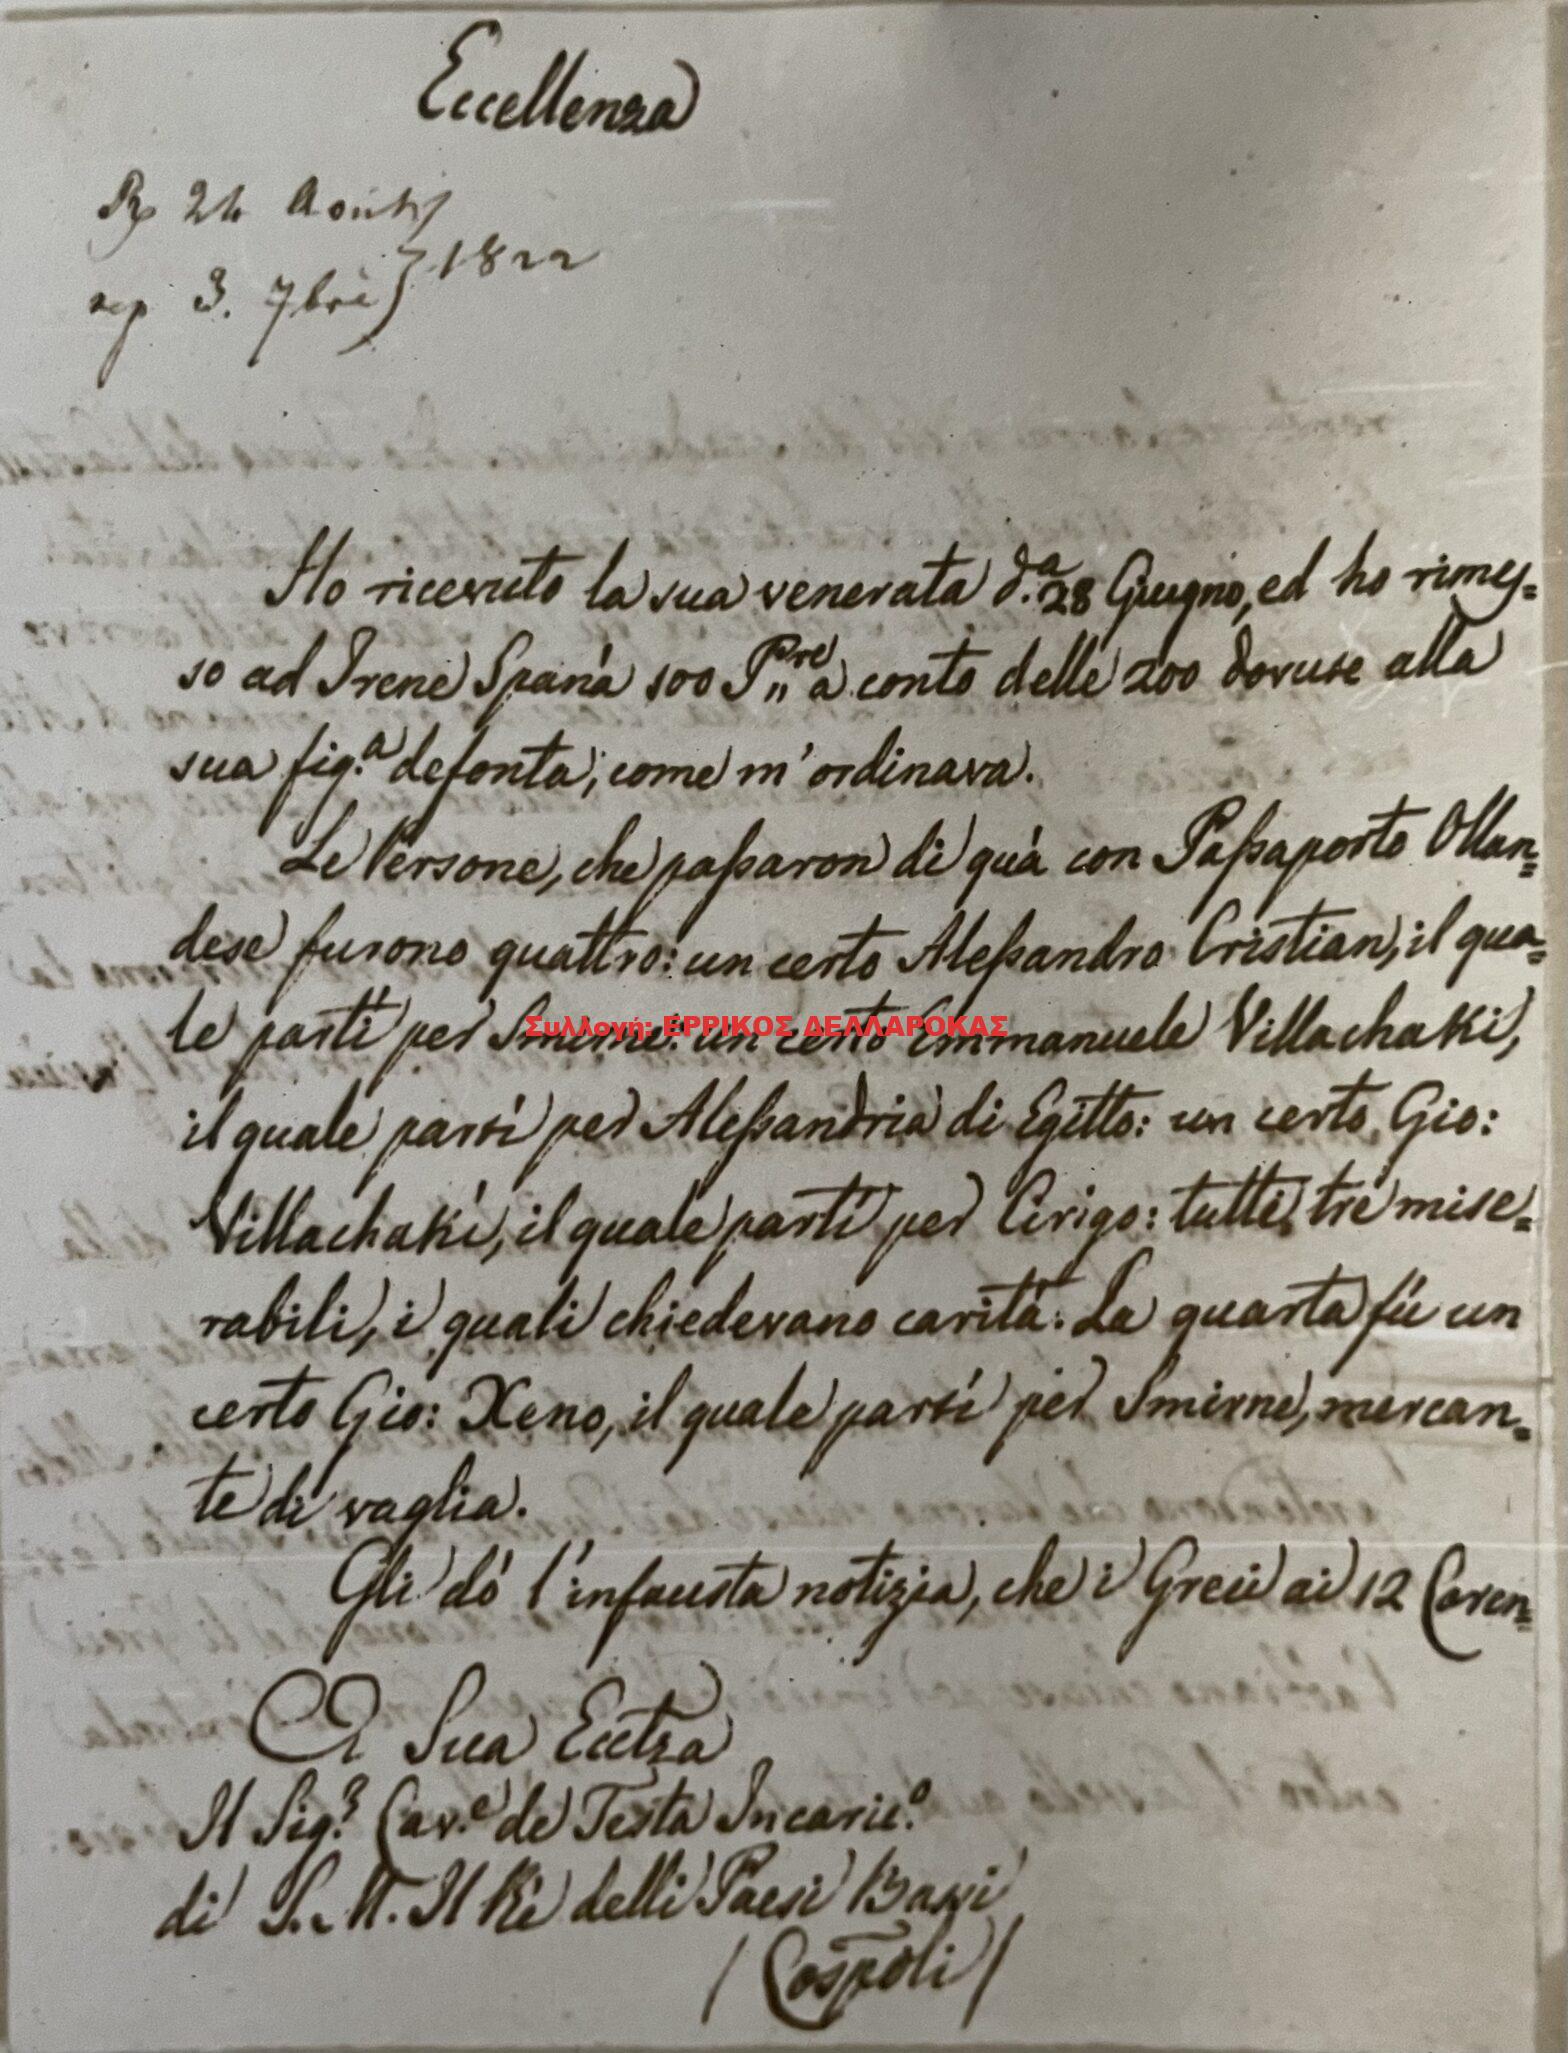 Eccellenza
Rp 24 Août
rep 3. 7bre } 1822
Ho ricevuto la sua venerata d.a 28 Giugno, ed ho rimes=
so ad Irene Spanà 100 P.re a conto delle 200 dovute alla
sua fig.a defonta, come m'ordinava.
Le Persone, che passaron di quà con Passaporto Ollan=
dese furono quattro: un certo Alessandro Cristian, il qua=
le partì per Smirne: un certo Emmanuele Villachaki,
Συλλογή: ΕΡΡΙΚΟΣ ΔΕΛΛΑΡΟΚΑΣ
il quale partì per Alessandria di Egitto: un certo Gio:
Villachaki, il quale partì per Cerigo: tutti tre mise=
rabili, i quali chiedevano carità: La quarta fù un
certo Gio: Xeno, il quale partì per Smirne, mercan=
te di vaglia.
Gli dò l'infausta notizia, che i Greci ai 12 Coren=
A Sua Ecctza
Il Sig.r Cav.e de Testa Incaric.o
di S. M. Il Rè delli Paesi Bassi
/ Cospoli /